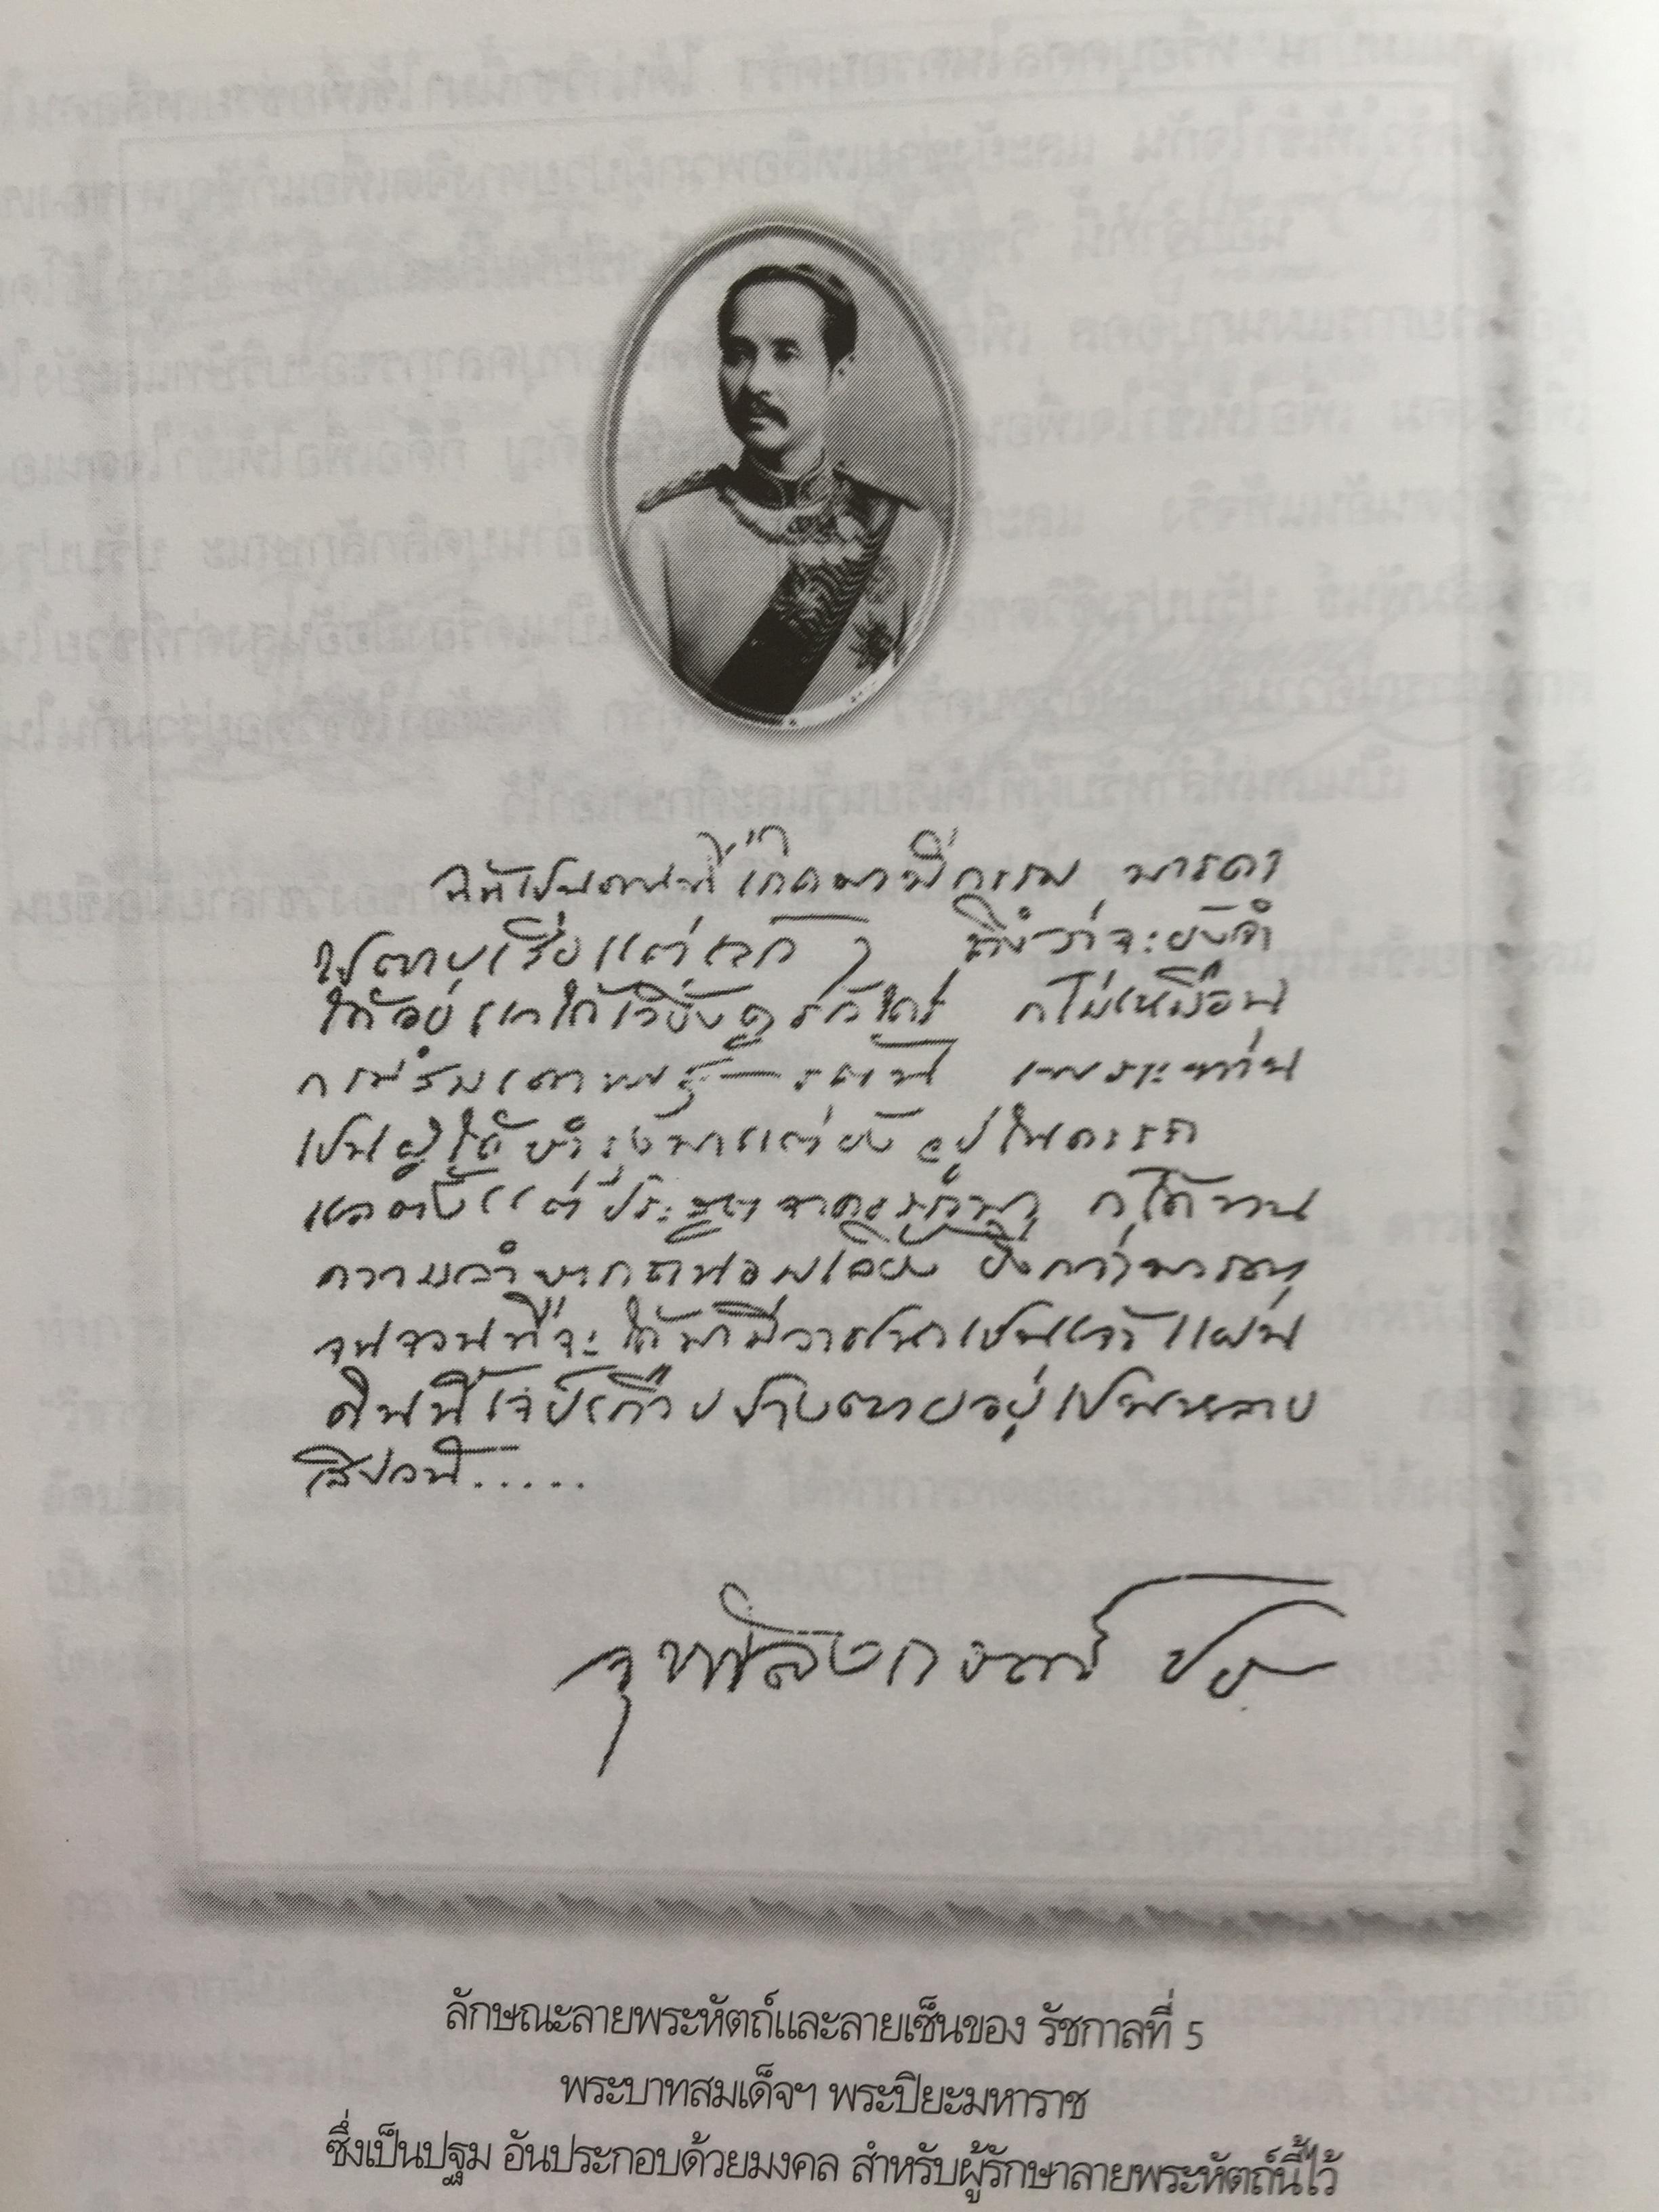 ฉันเป็นคนที่เกิดมามีกรรม มารดา
ตายเสียแต่เล็ก ๆ ถึงว่าจะยังจำ
ได้อยู่แลได้ ก็ไม่เหมือน
กรมสมเดจพระ เพราะท่าน
เปนผู้ได้บำรุงมาแต่ยังอยู่ในครรภ
แลตั้งแต่ประสูตรจากครรภ์มา ก็ได้ทน
ความลำบากถนอมเลี้ยง ยิ่งกว่ามารดา
จนจวนที่จะได้มามีวาสนาเปนเจ้าแผ่น
ดินนี้ เจ็บเกือบปางตายอยู่เปนหลาย
สิบวัน.....
จุฬาลงกรณ์ ปร.
ลักษณะลายพระหัตถ์และลายเซ็นของ รัชกาลที่ 5
พระบาทสมเด็จฯ พระปิยะมหาราช
ซึ่งเป็นปฐม อันประกอบด้วยมงคล สำหรับผู้รักษาลายพระหัตถ์นี้ไว้